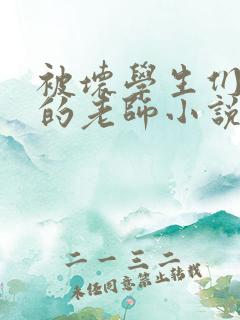 被壞學生们
的老師小説
二一三二
未经同意禁止转载